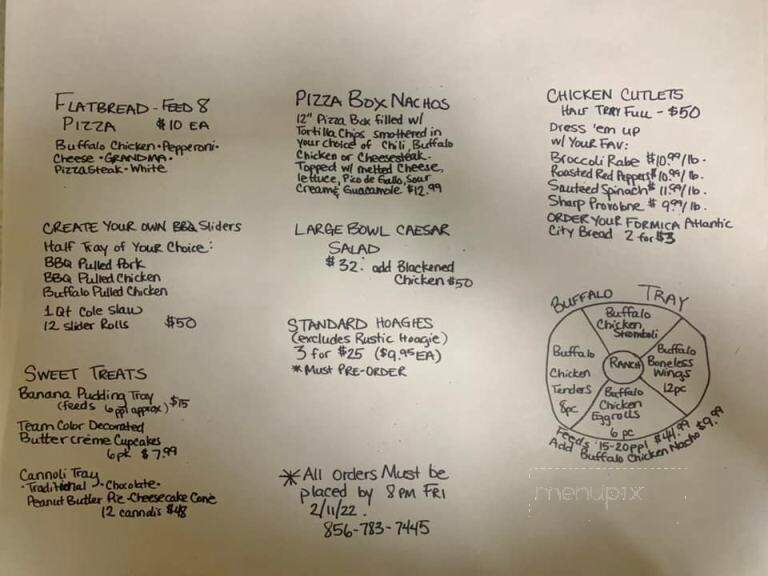 FLATBREAD - FEED 8
PIZZA $10 EA
Buffalo Chicken • Pepperoni •
Cheese • GRANDMA •
Pizza Steak • White
CREATE YOUR OWN BBQ Sliders
Half Tray of Your Choice:
BBQ Pulled Pork
BBQ Pulled Chicken
Buffalo Pulled Chicken
1 Qt Cole Slaw
12 Slider Rolls $50
SWEET TREATS
Banana Pudding Tray
(feeds 6 ppl approx) $15
Team Color Decorated
Buttercréme Cupcakes
6pk $7.99
Cannoli Tray
• Traditional • Chocolate •
Peanut Butter Pie • Cheesecake Cone
12 cannolis $48
PIZZA BOX NACHOS
12" Pizza Box filled w/
Tortilla Chips smothered in
your choice of Chili, Buffalo
Chicken or Cheesesteak.
Topped w/ melted Cheese,
lettuce, Pico de Gallo, Sour
Cream & Guacamole $12.99
LARGE BOWL CAESAR
SALAD
$32. add Blackened
Chicken $50
STANDARD HOAGIES
(excludes Rustic Hoagie)
3 for $25 ($9.95 EA)
* Must PRE-ORDER
* All Orders Must be
placed by 8 PM FRI
2/11/22.
856-783-7445
CHICKEN CUTLETS
HALF TRAY FULL - $50
Dress 'em up
w/ YOUR FAV:
Broccoli Rabe $10.99/lb.
Roasted Red Peppers $10.99/lb.
Sauteed Spinach $11.99/lb.
Sharp Provolone $9.99/lb.
ORDER YOUR FORMICA Atlantic
City Bread 2 for $3
BUFFALO TRAY
Buffalo
Chicken
Stromboli
Buffalo
Boneless
Wings
12pc
Buffalo
Chicken
Eggrolls
6 pc
Buffalo
Chicken
Tenders
8pc
RANCH
Feeds 15-20 ppl $44.99
Add Buffalo Chicken Nacho $9.99
menupix